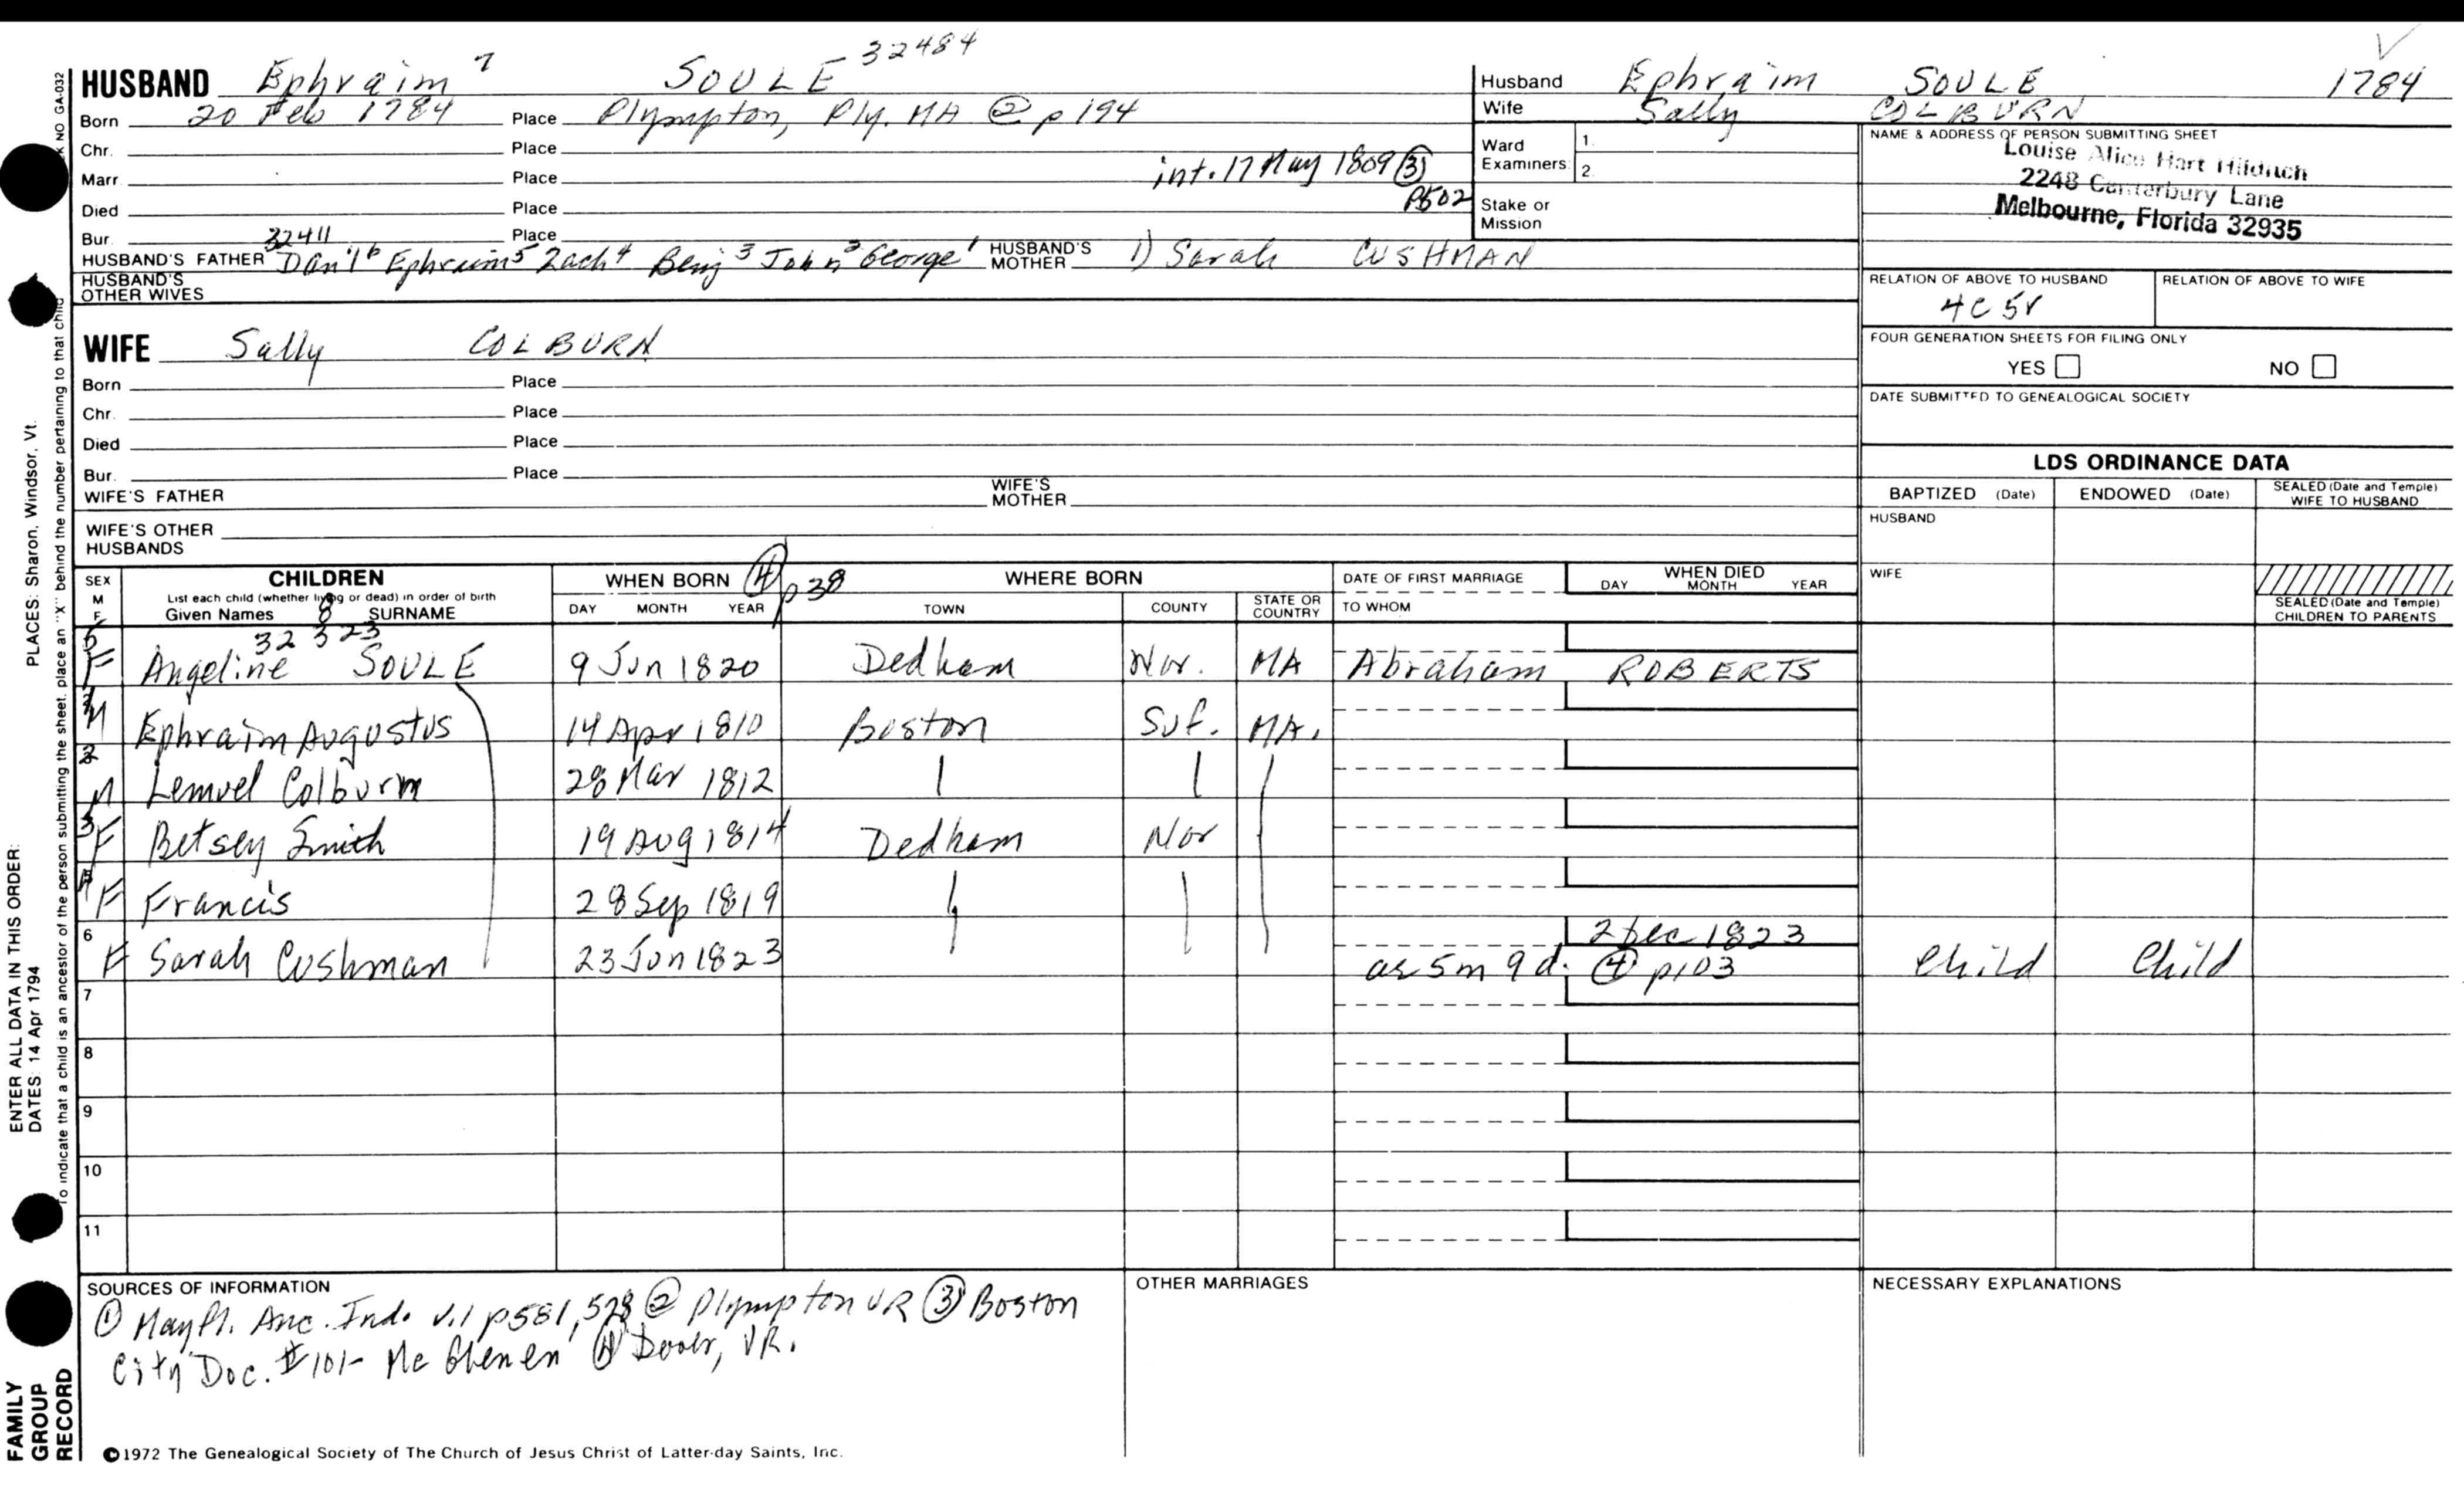 HUSBAND Ephraim 7 SOULE 32484
Born 20 Feb 1784 Place Plympton, Ply. MA ② p 194
Chr. Place
Marr Place int. 17 May 1809 ③
Died Place P502
Bur. Place
32411
HUSBAND'S FATHER Dan'l 6 Ephraim 5 Zach 4 Benj 3 John 2 George 1 HUSBAND'S MOTHER 1) Sarah CUSHMAN
HUSBAND'S
OTHER WIVES
WIFE Sally COLBURN
Born Place
Chr. Place
Died Place
Bur. Place
WIFE'S FATHER WIFE'S MOTHER
WIFE'S OTHER
HUSBANDS
Husband Ephraim SOULE 1784
Wife Sally COLBURN
Ward
Examiners: 1.
2.
Stake or
Mission
NAME & ADDRESS OF PERSON SUBMITTING SHEET
Louise Alice Hart Hildrich
2248 Canterbury Lane
Melbourne, Florida 32935
RELATION OF ABOVE TO HUSBAND RELATION OF ABOVE TO WIFE
4C 5r
FOUR GENERATION SHEETS FOR FILING ONLY
YES NO
DATE SUBMITTED TO GENEALOGICAL SOCIETY
LDS ORDINANCE DATA
BAPTIZED (Date) ENDOWED (Date) SEALED (Date and Temple) WIFE TO HUSBAND
HUSBAND
WIFE
SEALED (Date and Temple)
CHILDREN TO PARENTS
SEX
M
F
CHILDREN
List each child (whether living or dead) in order of birth
Given Names 8 SURNAME
WHEN BORN ④ p 38
DAY MONTH YEAR
WHERE BORN
TOWN COUNTY STATE OR COUNTRY
DATE OF FIRST MARRIAGE
TO WHOM
WHEN DIED
DAY MONTH YEAR
32 323
5 F Angeline SOULE 9 Jun 1820 Dedham Nor. MA Abraham ROBERTS
1 M Ephraim Augustus 14 Apr 1810 Boston Suf. MA.
2 M Lemuel Colburn 28 Mar 1812
3 F Betsey Smith 19 Aug 1814 Dedham Nor
4 F Francis 28 Sep 1819
2 Dec 1823
6 F Sarah Cushman 23 Jun 1823 ae 5m 9 d. ④ p103 Child Child
7
8
9
10
11
SOURCES OF INFORMATION
① Mayfl. Anc. Ind. v.1 p581, 528 ② Plympton VR ③ Boston
City Doc. #101- Mc Glenen ④ Dover, VR.
OTHER MARRIAGES
NECESSARY EXPLANATIONS
©1972 The Genealogical Society of The Church of Jesus Christ of Latter-day Saints, Inc.
NO GA-032
To indicate that a child is an ancestor of the person submitting the sheet, place an "X" behind the number pertaining to that child
PLACES: Sharon, Windsor, Vt.
ENTER ALL DATA IN THIS ORDER:
DATES: 14 Apr 1794
FAMILY
GROUP
RECORD